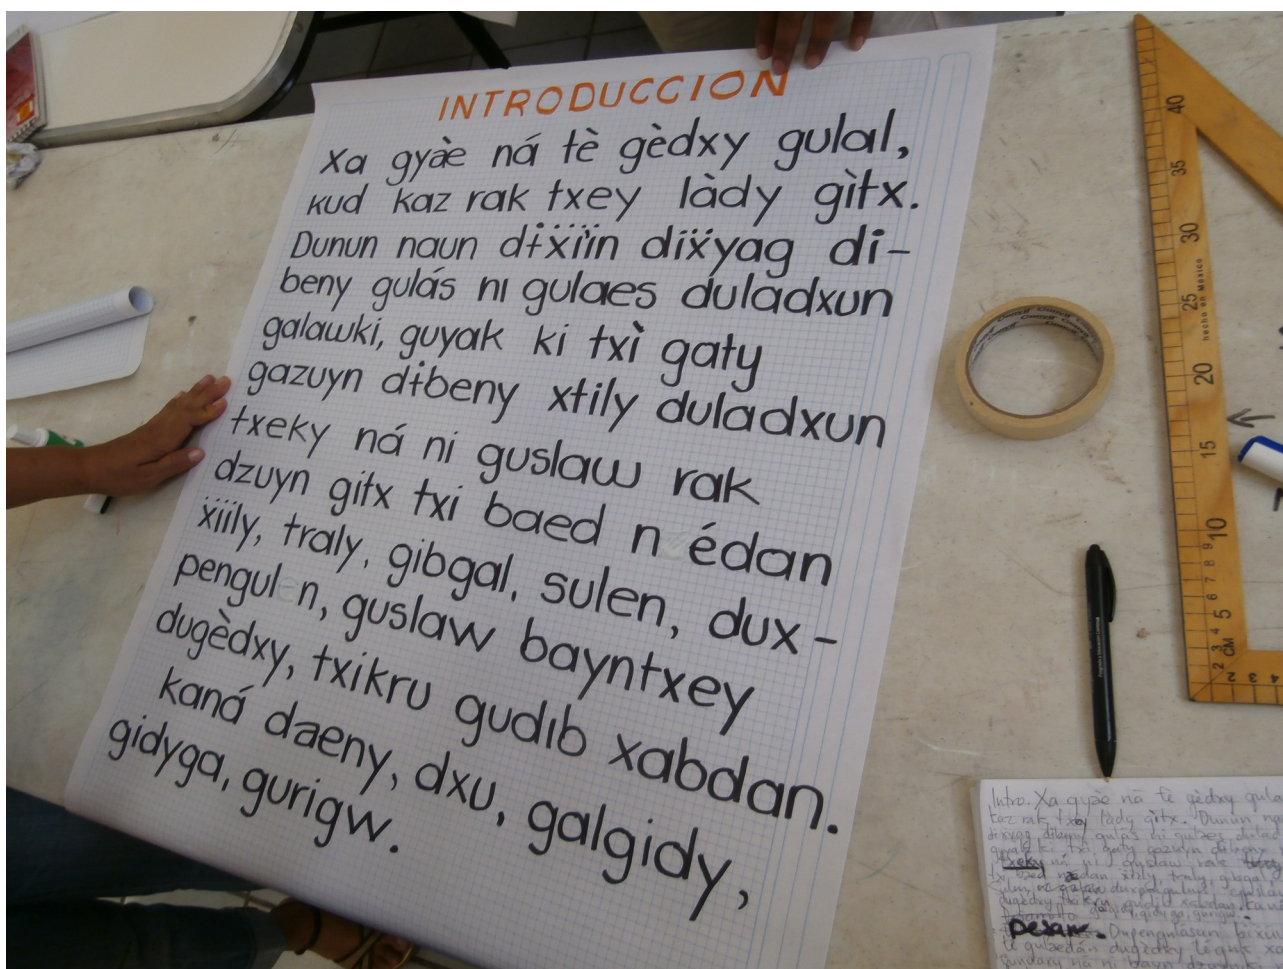 INTRODUCCION
Xa gyàe ná tè gèdxy gulal,
kud kaz rak txey làdy gìtx.
Dunun naun dɨẍïïn diẍyag di-
beny gulás ni gulaes duladxun
galawki, guyak ki txì gaty
gazuyn dɨbeny xtily duladxun
txeky ná ni guslaw rak
dzuyn gitx txi baed n édan
ẍiily, traly, gibgal, sulen, dux-
pengul n, guslaw bayntxey
dugèdxy, txikru gudib xabdan.
kaná daeny, dxu, galgidy,
gidyga, gurigw.
40
35
30
25
20
15
10
9
8
7
6
5
4
3
2
CM
hecho en Mexico
2 3 4
Intro. Xa gyàe ná tè gèdxy gula
kaz rak txey làdy gitx. Dunun
dibeny gulás ni gulaes
guyak ki txi gaty gazuyn dibeny
txeky ná ni guslaw rak
txi baed
dugèdxy txikru gudib xabdan
gidyga, gurigw.
pexam.
Dupengulasun